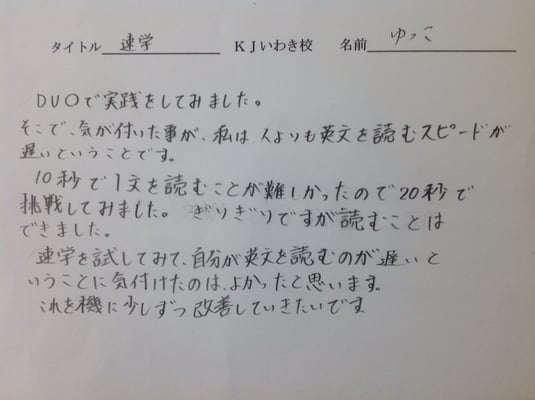 タイトル 速学 KJいわき校 名前 ゆっこ
DUOで実践をしてみました。
そこで、気が付いた事が、私は人よりも英文を読むスピードが
遅いということです。
10秒で1文を読むことが難しかったので20秒で
挑戦してみました。ぎりぎりですが読むことは
できました。
速学を試してみて、自分が英文を読むのが遅いと
いうことに気付けたのは、よかったと思います。
これを機に少しずつ改善していきたいです